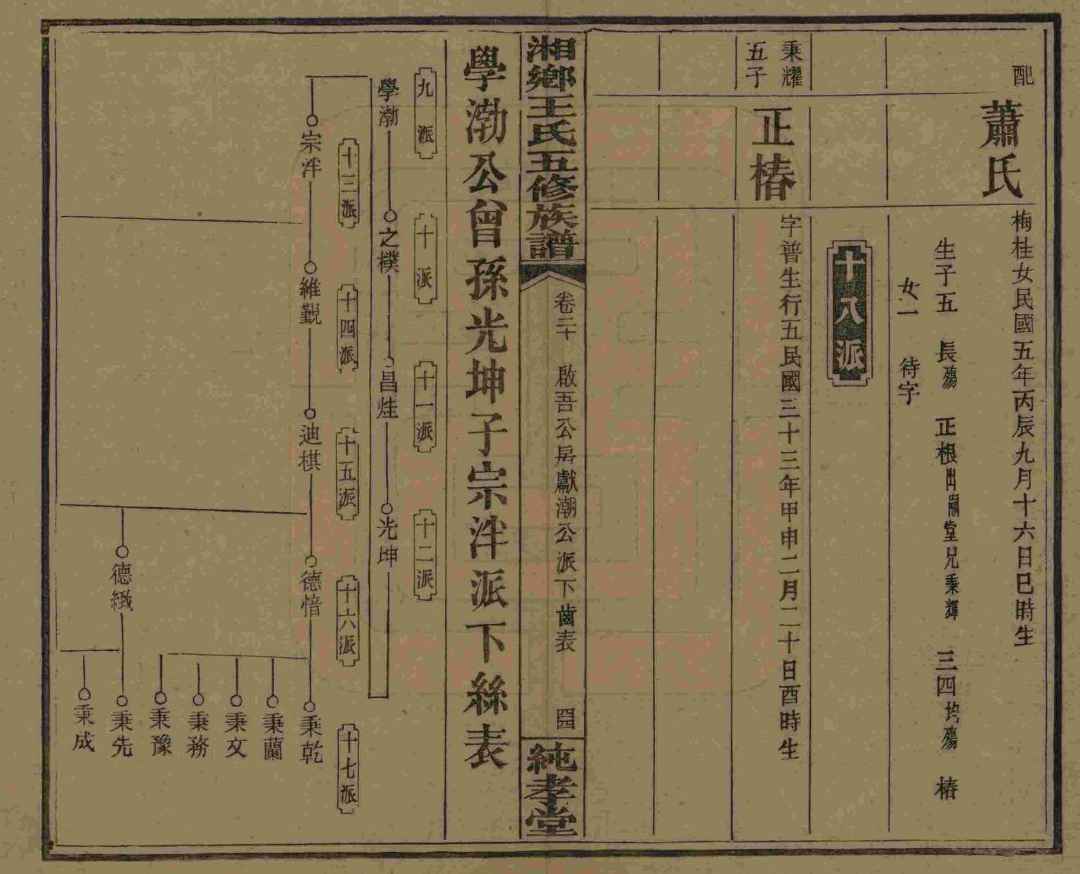 配
蕭氏
梅桂女民國五年丙辰九月十六日巳時生
生子五 長殤 正根出嗣堂兄秉輝 三四均殤 椿
女一 待字
十八派
秉耀五子
正椿
字普生行五民國三十三年甲申二月二十日酉時生
湘鄉王氏五修族譜
卷二十 啟吾公房獻潮公派下齒表
純孝堂
學渤公曾孫光坤子宗泮派下絲表
九派 十派 十一派 十二派
學渤 之樸 昌炷 光坤
十三派 十四派 十五派 十六派 十七派
宗泮 維觀 迪棋 德愔 秉乾
秉蘭
秉文
秉務
秉豫
德緻 秉先
秉成